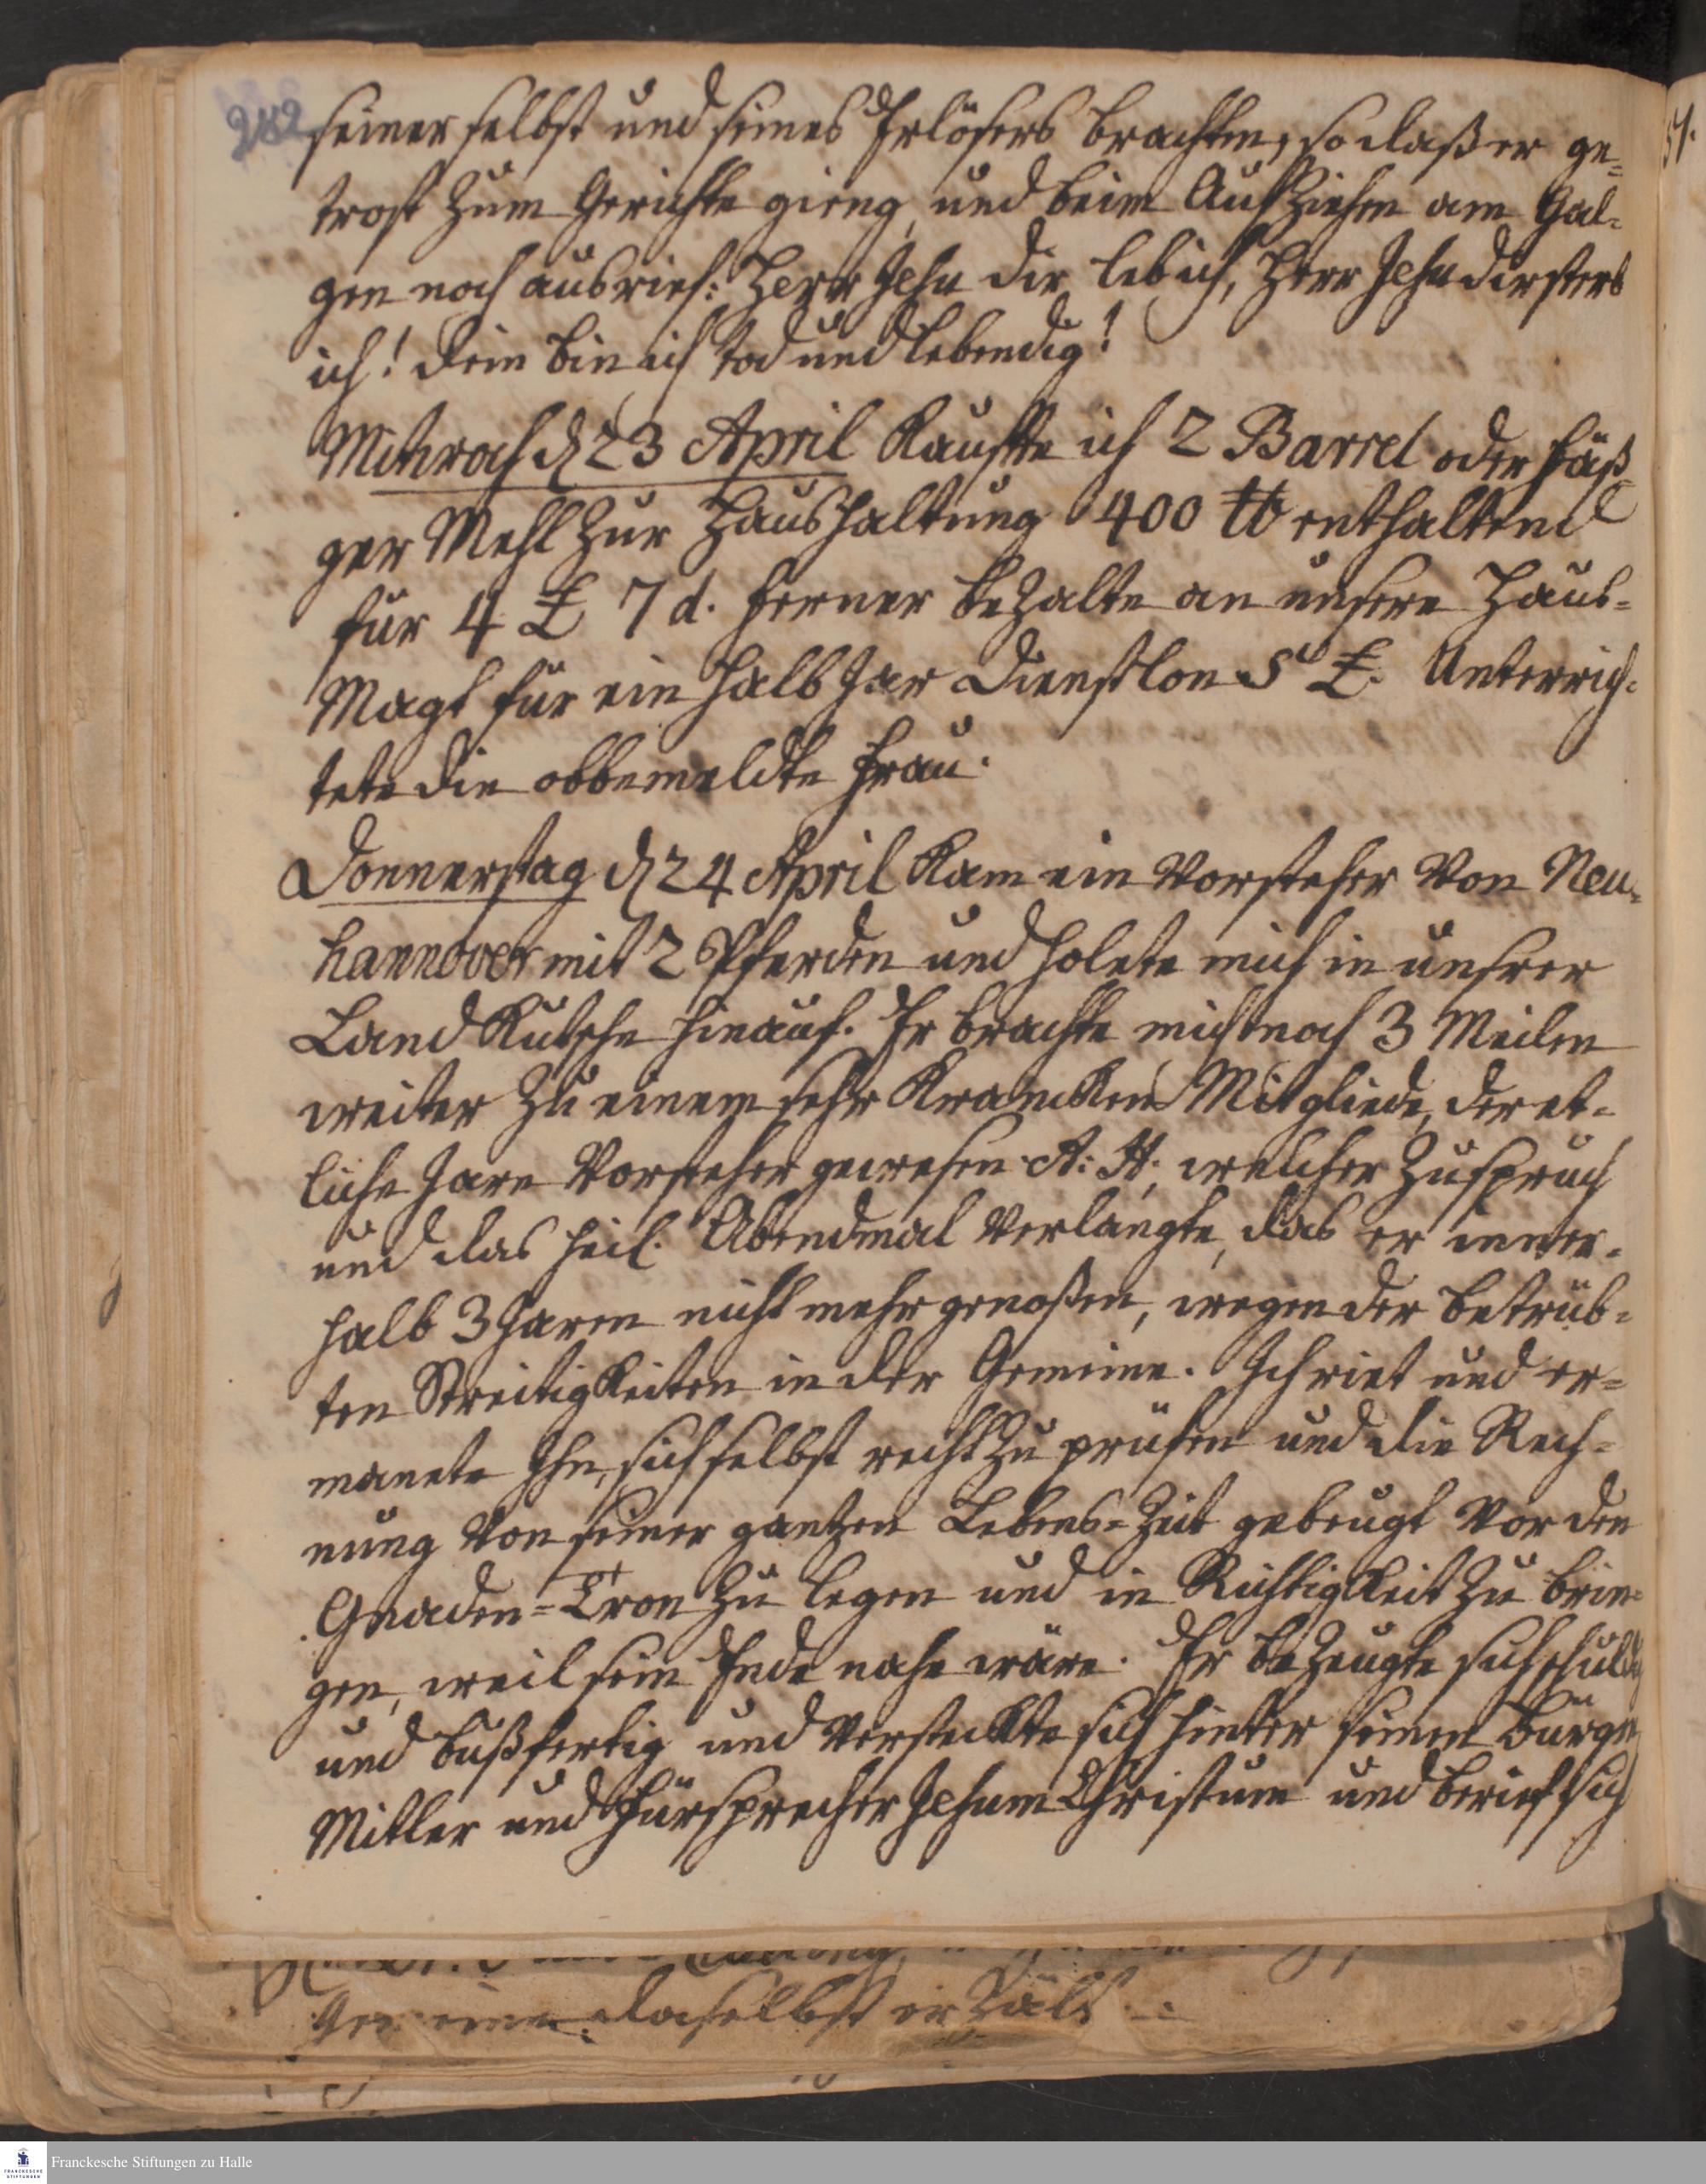 282
seiner selbst und seines Erlösers brachten, so daß er ge-
trost zum Gerichte gieng, und beim Aufziehen am Gal-
gen noch ausrief: Herr Jesu dir leb ich, Herr Jesu dir sterb
ich! dein bin ich tod und lebendig!
Mitwoch d 23 April kaufte ich 2 Barrel oder Fäß-
ger Mehl zur Haushaltung 400 ℔ enthaltend
für 4 £ 7 d. ferner bezalte an unsere Haus-
Magt für ein halb Jar Dienstlon 5 £. Unterrich-
tete die obbemeldte Frau.
Donnerstag d 24 April kam ein Vorsteher von Neu-
hannover mit 2 Pferden und holete mich in unsrer
Land Kutsche hinauf. Er brachte mich noch 3 Meilen
weiter zu einem sehr krancken Mitgliede, der et-
liche Jare Vorsteher gewesen A: H. welcher Zuspruch
und das heil. Abendmal verlangte, das er inner-
halb 3 Jaren nicht mehr genoßen, wegen der betrüb-
ten Streitigkeiten in der Gemeine. Ich riet und er-
manete Ihn, sich selbst recht zu prüfen und die Rech-
nung von seiner gantzen Lebens-Zeit gebeugt vor den
Gnaden-Tron zu legen und in Richtigkeit zu brin-
gen, weil sein Ende nahe wäre. Er bezeugte sich schuldig
und bußfertig und versteckte sich hinter seinen Bürgen
Mitler und Fürsprecher Jesum Christum und berief sich
daselbst erzält
Franckesche Stiftungen zu Halle